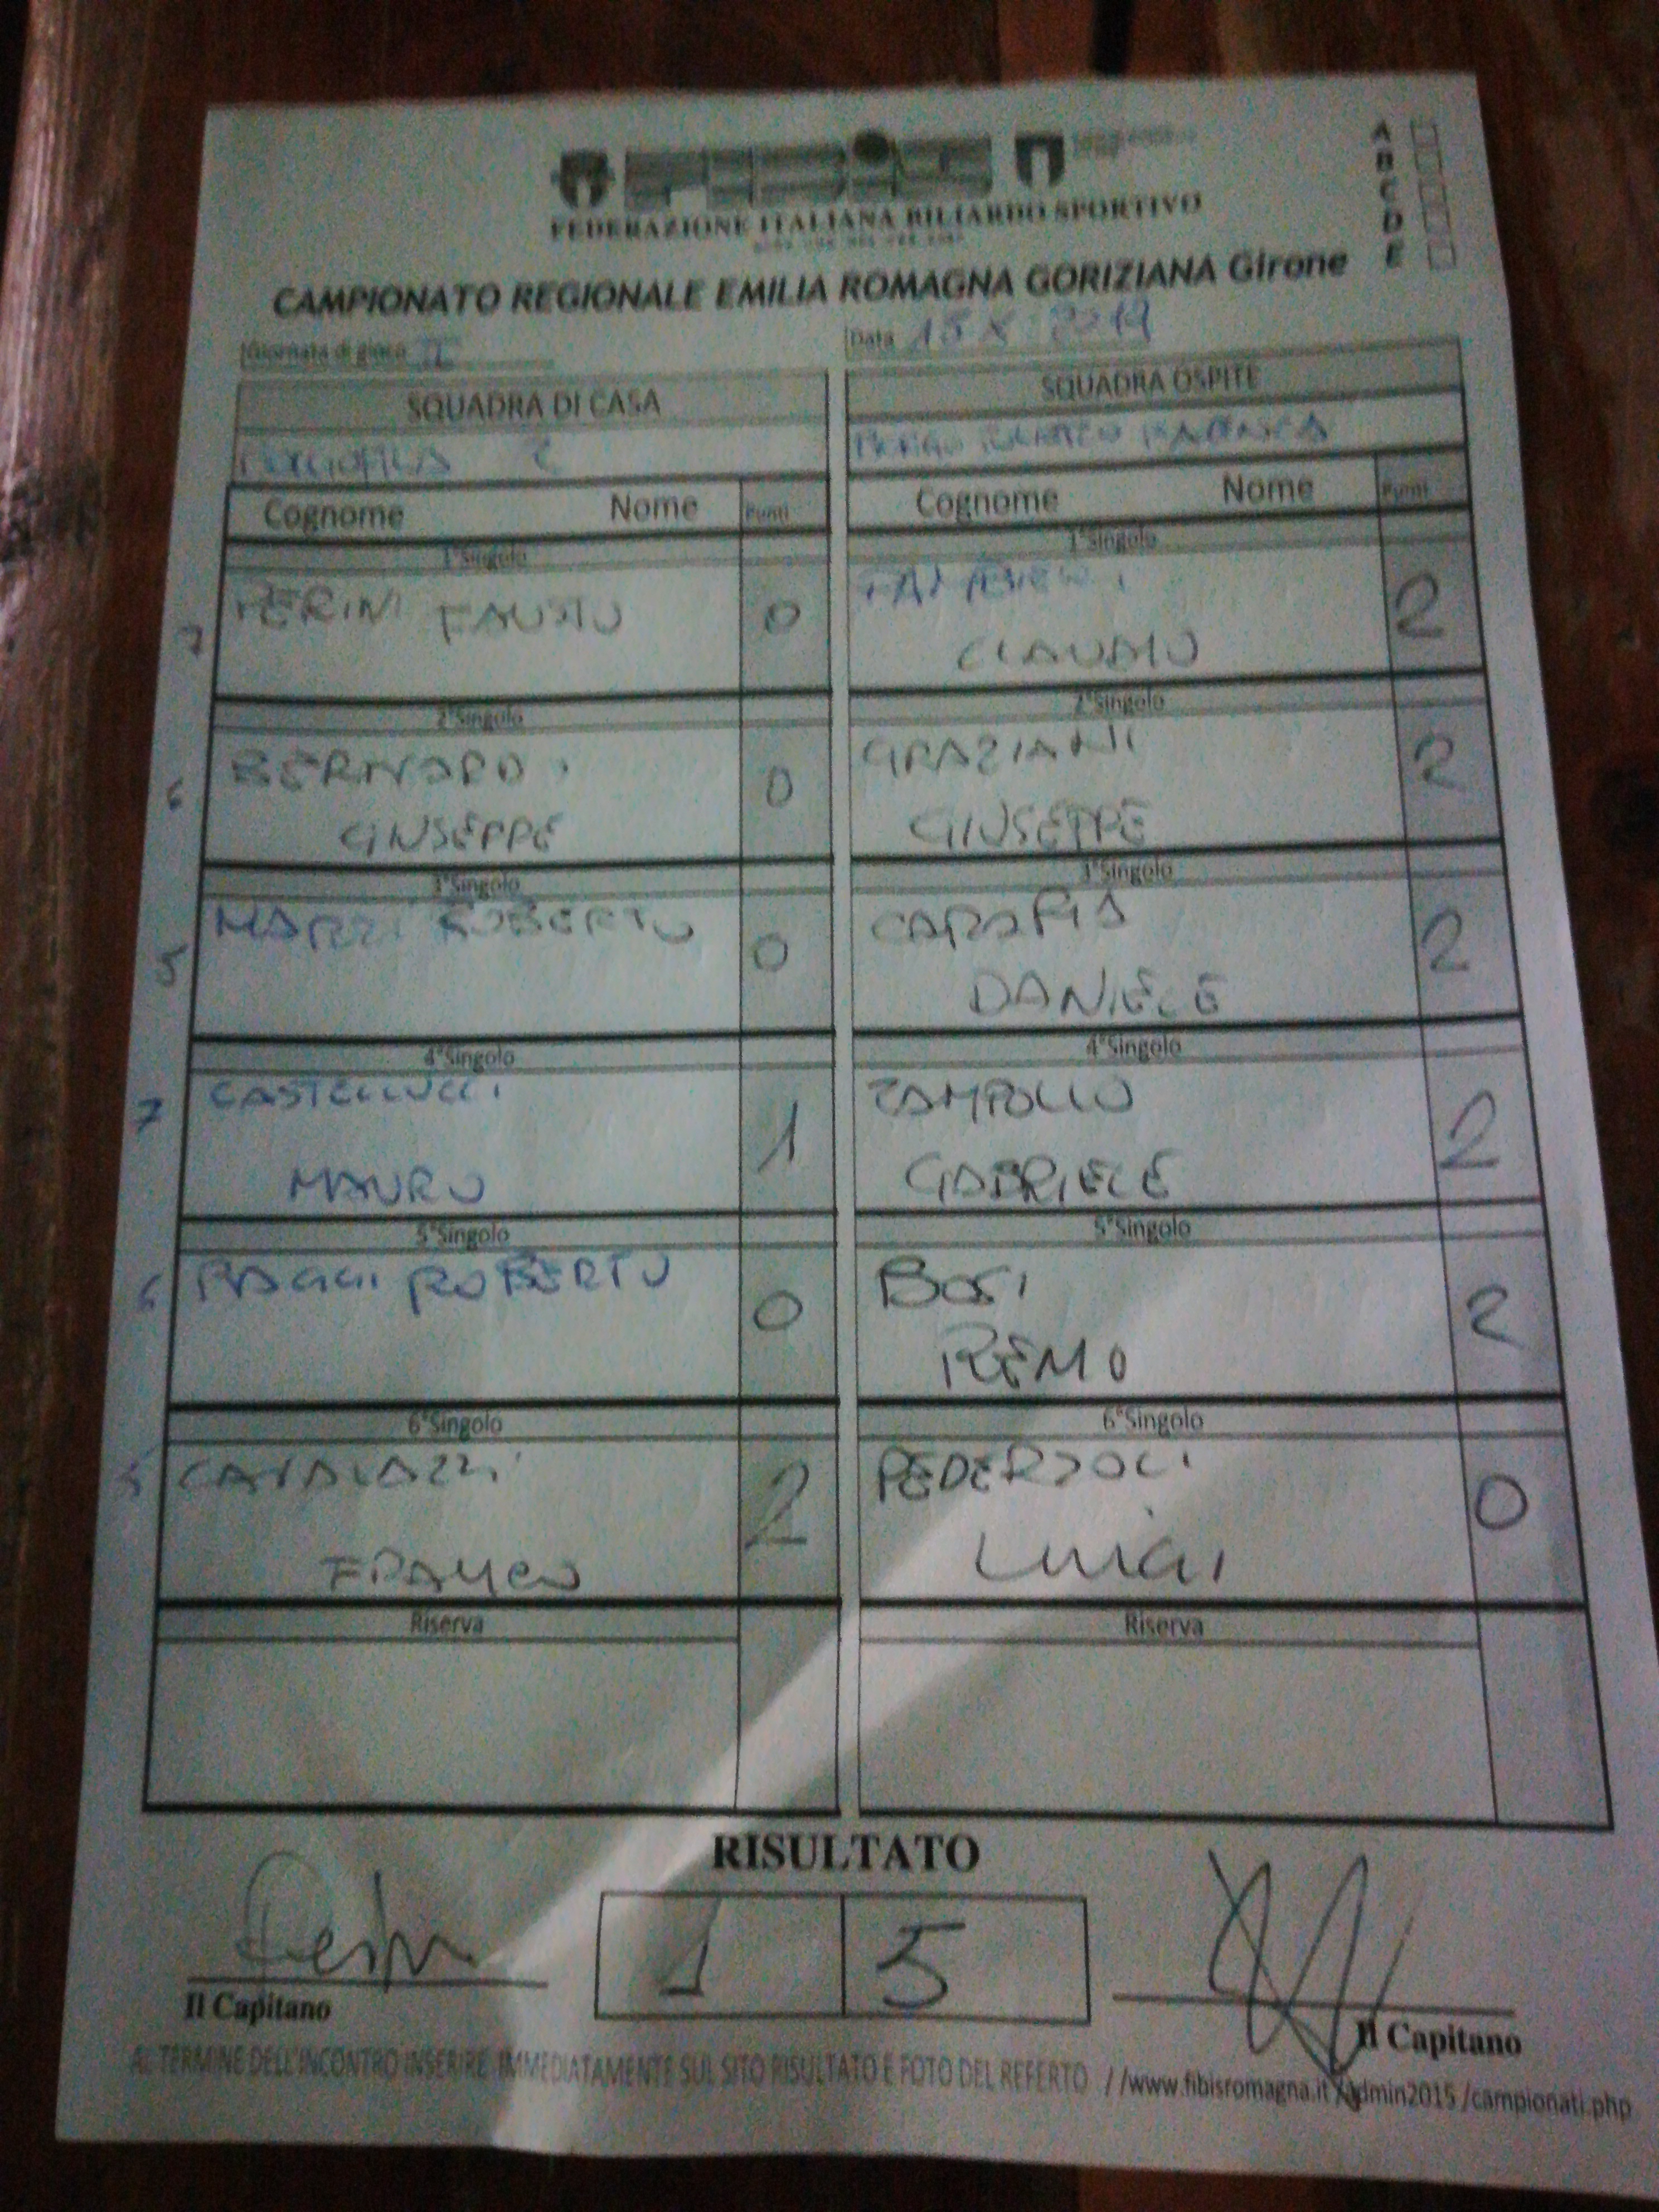 FIBiS
FEDERAZIONE ITALIANA BILIARDO SPORTIVO
A
B
C
D
E
CAMPIONATO REGIONALE EMILIA ROMAGNA GORIZIANA Girone
Giornata di gioco
Data 15 X 2019
SQUADRA DI CASA
SQUADRA OSPITE
2
Cognome Nome Punti
Cognome Nome Punti
1°Singolo
1°Singolo
7 PERINI FAUSTO 0
CLAUDIO 2
2°Singolo
2°Singolo
6 BERNARDI
GIUSEPPE 0
GRAZIANI
GIUSEPPE 2
3°Singolo
3°Singolo
5 ROBERTO 0
DANIELE 2
4°Singolo
4°Singolo
7 CASTELLUCCI
MAURO 1
ZAMPOLLO
GABRIELE 2
5°Singolo
5°Singolo
6 ROBERTO 0
BOSI
REMO 2
6°Singolo
6°Singolo
5 CAVALAZZI
FRANCO 2
PEDERSOLI
LUIGI 0
Riserva
Riserva
RISULTATO
1 5
Il Capitano
Il Capitano
AL TERMINE DELL'INCONTRO INSERIRE IMMEDIATAMENTE SUL SITO RISULTATO E FOTO DEL REFERTO //www.fibisromagna.it /admin2015 /campionati.php